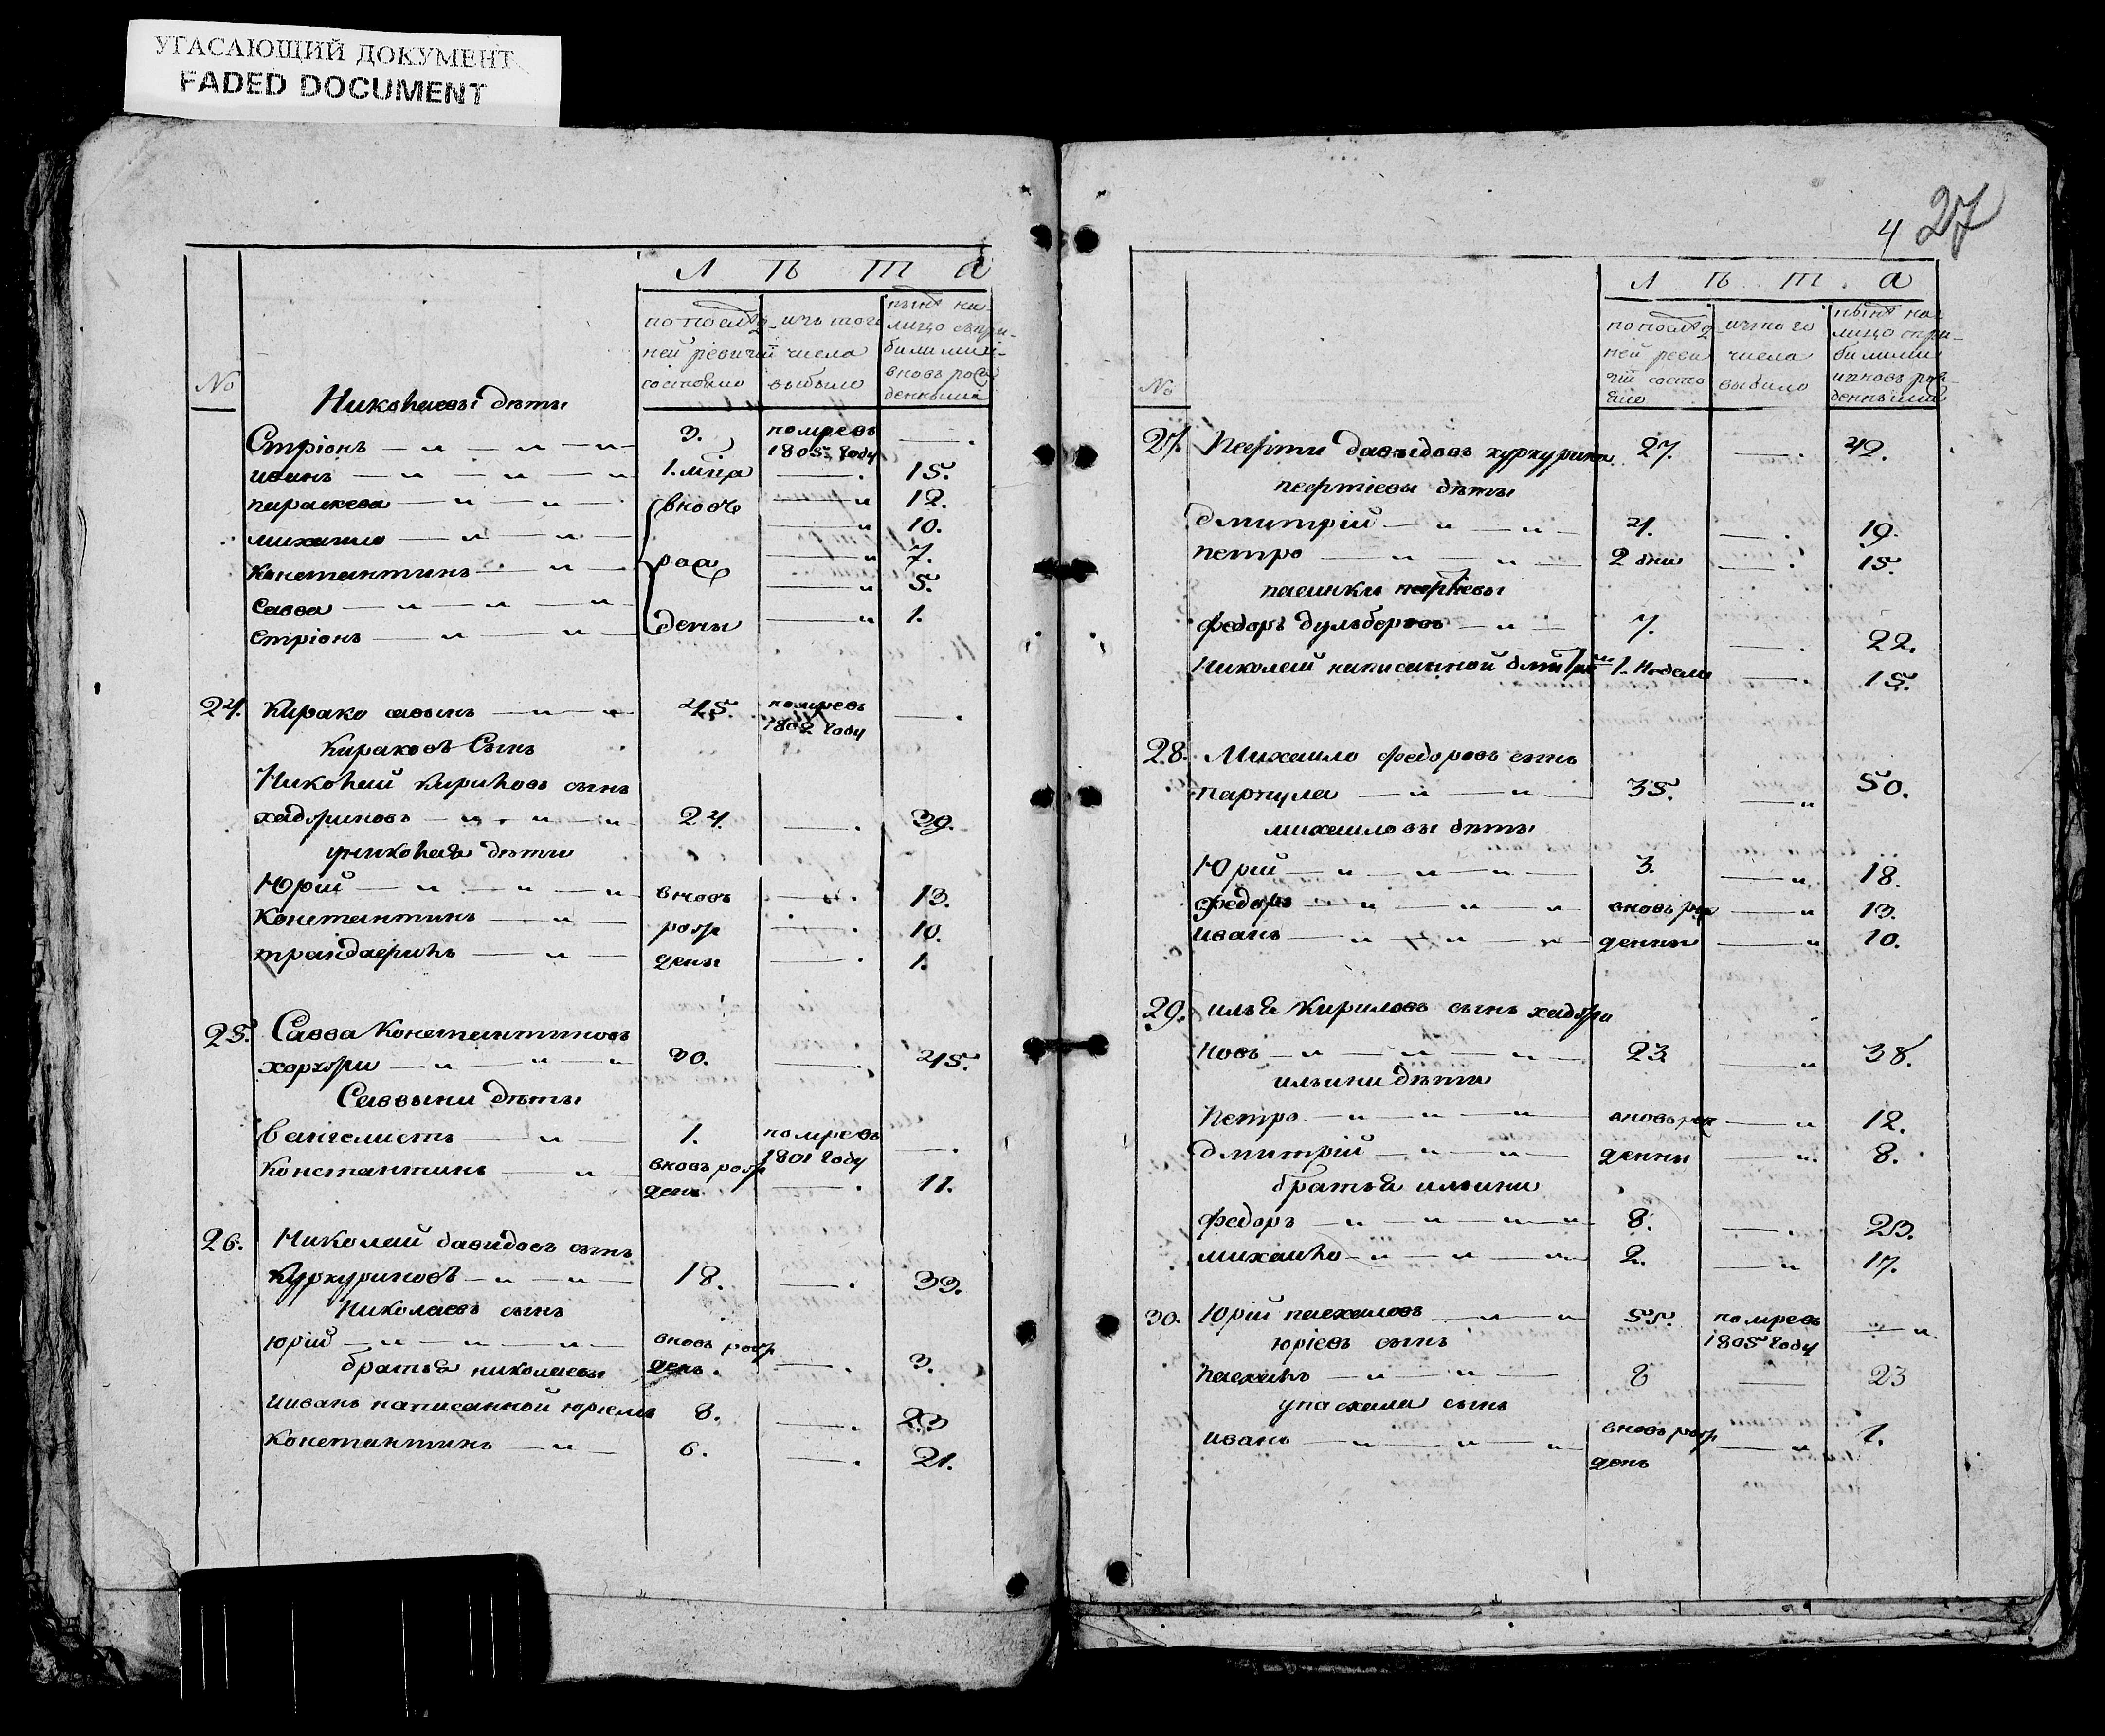 УГАСАЮЩИЙ ДОКУМЕНТ
FADED DOCUMENT
Л Ѣ Т А
№
по послѣд
ней ревизіи
состояло
изъ того
числа
выбыло
нынѣ на
лицо съ при
былыми и
вновь рож
денными
Николаевы дѣти
Стріонъ 3. померъ 1805 году
иванъ 1. мца 15.
параскева вновь 12.
михаило 10.
Константинъ рож 7.
савва 5.
стріонъ дены 1.
24. Кирако савинъ 45. померъ 1802 году
Кираковъ Сынъ
Николай Кириловъ сынъ
хаджиновъ 24. 39.
у николая дѣти
Юрій вновь 13.
Константинъ рож 10.
трандафилъ дены 1.
25. Савва Константиновъ
30. 45.
Саввины дѣти
Вангелистъ 1. померъ 1801 году
Константинъ вновь рож 11.
денъ
26. Николай давидовъ сынъ
Куркуриновъ 18. 33.
Николаевъ сынъ
юрій вновь рож
братья николаевы денъ. 3.
иванъ написанной юріемъ 8. 23
Константинъ 6. 21.
4 27
Л Ѣ Т А
№
по послѣд
ней реви
зіи состо
яло
изъ того
числа
выбыло
нынѣ на
лицо съ при
былыми
и вновь рож
денными
27. давыдовъ 27. 42.
дѣти
дмитрій 4. 19.
петро 2 дни 15.
пасинки
федоръ 7. 22.
Николай написанной 1. недели 15.
28. Михаило федоровъ сынъ
35. 50.
михаиловы дѣти
Юрій 3. 18.
федоръ вновь рож 13.
иванъ денны 10.
29. илья Кириловъ сынъ хаджи
новъ 23 38.
ильины дѣти
Петро вновь рож 12.
дмитрій денны 8.
братья ильины
федоръ 8. 23.
михаило 2. 17.
30. Юрій пасхаловъ 55. померъ 1805 году
юріевъ сынъ
пасхалъ 8 23
у пасхала сынъ
иванъ вновь рож 1.
денъ